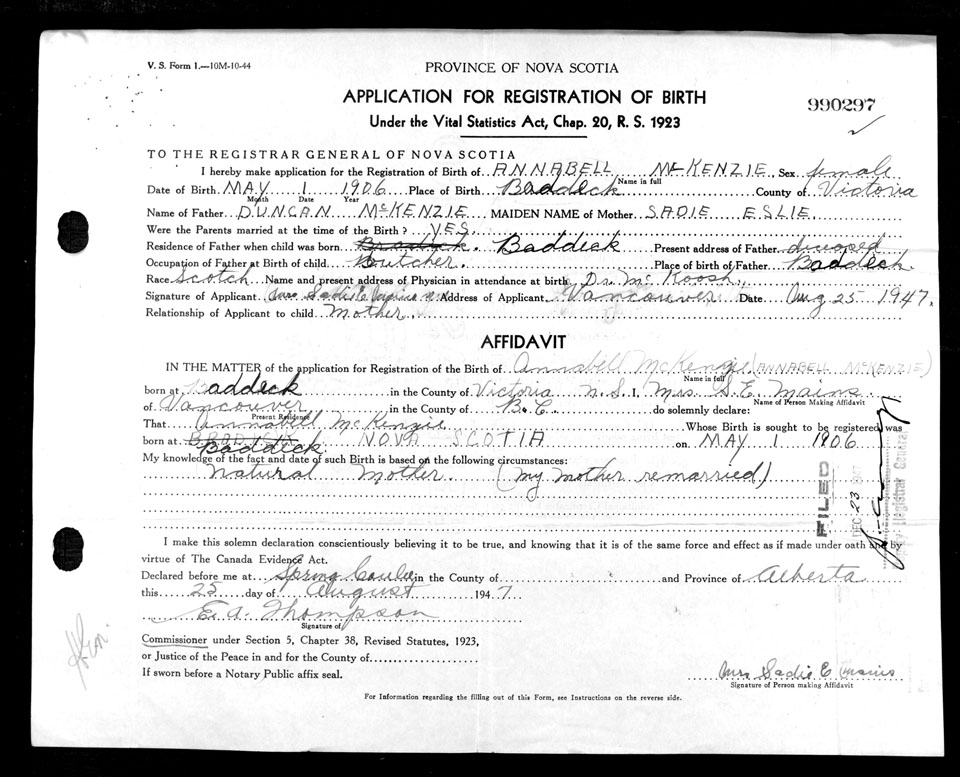 V. S. Form 1.—10M-10-44
PROVINCE OF NOVA SCOTIA
APPLICATION FOR REGISTRATION OF BIRTH
990297
Under the Vital Statistics Act, Chap. 20, R. S. 1923
TO THE REGISTRAR GENERAL OF NOVA SCOTIA
I hereby make application for the Registration of Birth of ANNABELL McKENZIE, Sex female
Name in full
Date of Birth MAY 1 1906 Place of Birth Baddeck County of Victoria
Month Date Year
Name of Father DUNCAN McKENZIE MAIDEN NAME of Mother SADIE ESLIE
Were the Parents married at the time of the Birth? YES
Residence of Father when child was born Baddeck Present address of Father
Occupation of Father at Birth of child Butcher. Place of birth of Father Baddeck
Race Scotch Name and present address of Physician in attendance at birth Dr. Mc Koosh,
Signature of Applicant Mrs Sadie E Address of Applicant Vancouver Date Aug 25 1947.
Relationship of Applicant to child Mother.
AFFIDAVIT
IN THE MATTER of the application for Registration of the Birth of Annabell McKenzie (ANNABELL McKENZIE)
Name in full
born at Baddeck in the County of Victoria N.S. I, Mrs. S. E. Mains
Name of Person Making Affidavit
of Vancouver in the County of B.C. do solemnly declare:
Present Residence
That Annabell McKenzie Whose Birth is sought to be registered was
born at Baddick. NOVA SCOTIA on MAY 1 1906
My knowledge of the fact and date of such Birth is based on the following circumstances:
Natural Mother. (My mother remarried)
FILED
DEC 23
Registrar General
I make this solemn declaration conscientiously believing it to be true, and knowing that it is of the same force and effect as if made under oath and by
virtue of The Canada Evidence Act.
Declared before me at Spring Coulee in the County of and Province of Alberta
this 25 day of August 1947
E. A. Thompson
Signature of
Commissioner under Section 5, Chapter 38, Revised Statutes, 1923,
or Justice of the Peace in and for the County of
If sworn before a Notary Public affix seal.
Mrs Sadie E Mains
Signature of Person making Affidavit
For Information regarding the filling out of this Form, see Instructions on the reverse side.